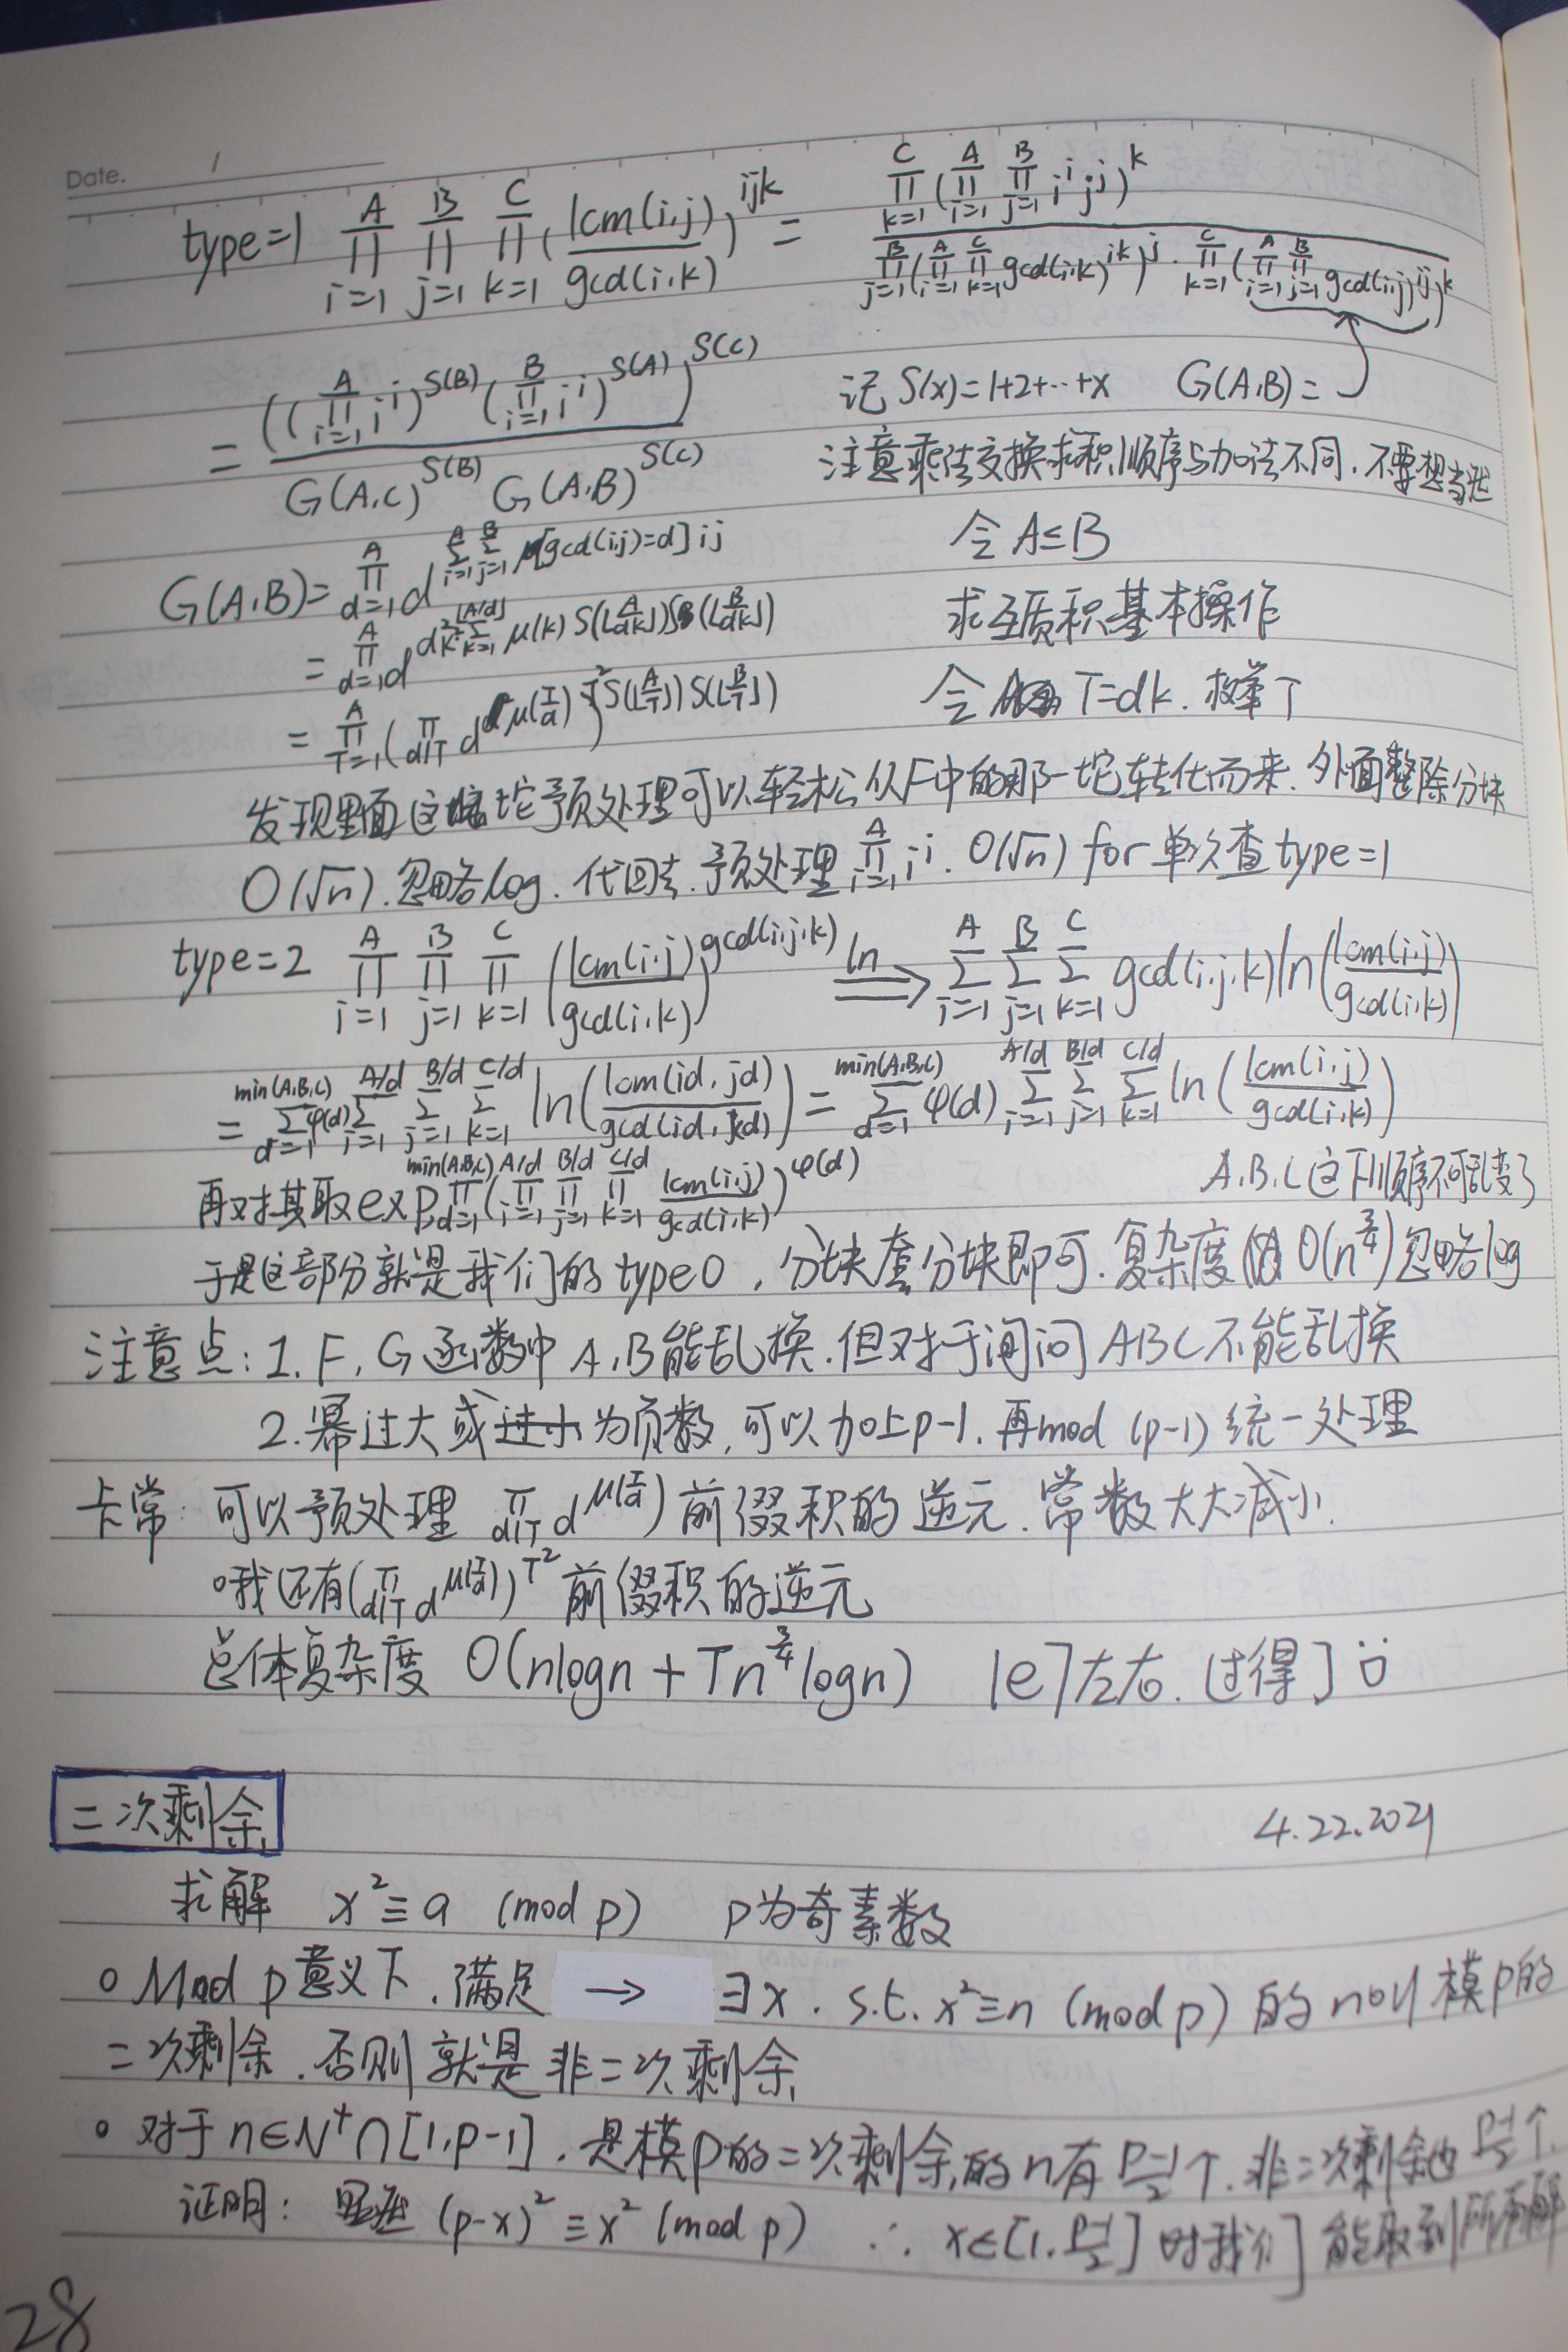 Date. /
type=1 ∏_{i=1}^{A} ∏_{j=1}^{B} ∏_{k=1}^{C} (lcm(i,j)/gcd(i,k))^{ijk} = ∏_{k=1}^{C} (∏_{i=1}^{A} ∏_{j=1}^{B} i^i j^j)^k / (∏_{j=1}^{B} (∏_{i=1}^{A} ∏_{k=1}^{C} gcd(i,k)^{ik})^j · ∏_{k=1}^{C} (∏_{i=1}^{A} ∏_{j=1}^{B} gcd(i,j)^{ij})^k)
= ((∏_{i=1}^{A} i^i)^{S(B)} (∏_{i=1}^{B} i^i)^{S(A)})^{S(C)} / (G(A,C)^{S(B)} G(A,B)^{S(C)}) 记 S(x)=1+2+…+x G(A,B)=
注意乘法交换求积顺序与加法不同,不要想当然
G(A,B)=∏_{d=1}^{A} d^{∑_{i=1}^{A} ∑_{j=1}^{B} [gcd(i,j)=d] ij} 令 A≤B
=∏_{d=1}^{A} d^{d²k² ∑_{k=1}^{[A/d]} μ(k) S(⌊A/dk⌋) S(⌊B/dk⌋)} 求互质积基本操作
=∏_{T=1}^{A} (∏_{d|T} d^{μ(T/d)})^{T² S(⌊A/T⌋) S(⌊B/T⌋)} 令 T=dk. 枚举T
发现里面这坨预处理可以轻松从F中的那一坨转化而来. 外面整除分块
O(√n). 忽略log. 代回去. 预处理 ∏_{i=1}^{A} i^i. O(√n) for 单次查type=1
type=2 ∏_{i=1}^{A} ∏_{j=1}^{B} ∏_{k=1}^{C} (lcm(i,j)/gcd(i,k))^{gcd(i,j,k)} ⟹^{ln} ∑_{i=1}^{A} ∑_{j=1}^{B} ∑_{k=1}^{C} gcd(i,j,k) ln(lcm(i,j)/gcd(i,k))
= ∑_{d=1}^{min(A,B,C)} φ(d) ∑_{i=1}^{A/d} ∑_{j=1}^{B/d} ∑_{k=1}^{C/d} ln(lcm(id,jd)/gcd(id,kd)) = ∑_{d=1}^{min(A,B,C)} φ(d) ∑_{i=1}^{A/d} ∑_{j=1}^{B/d} ∑_{k=1}^{C/d} ln(lcm(i,j)/gcd(i,k))
再对其取exp, ∏_{d=1}^{min(A,B,C)} (∏_{i=1}^{A/d} ∏_{j=1}^{B/d} ∏_{k=1}^{C/d} lcm(i,j)/gcd(i,k))^{φ(d)} A,B,C这下顺序不可乱变了
于是这部分就是我们的type0, 分块套分块即可. 复杂度 O(n^{3/4}) 忽略log
注意点: 1. F, G函数中 A,B能乱换. 但对于询问 ABC不能乱换
2. 幂过大或过小为负数, 可以加上p-1. 再mod (p-1) 统一处理
卡常: 可以预处理 ∏_{d|T} d^{μ(T/d)} 前缀积的逆元. 常数大大减小.
哦还有(∏_{d|T} d^{μ(T/d)})^{T²} 前缀积的逆元
总体复杂度 O(nlogn + Tn^{3/4}logn) 1e7左右. 过得了
二次剩余
4.22.2021
求解 x²≡a (mod p) p为奇素数
○ Mod p 意义下. 满足 → ∃x. s.t. x²≡n (mod p) 的n叫模p的
二次剩余. 否则就是非二次剩余
○ 对于n∈N⁺∩[1,p-1]. 是模p的二次剩余的n有 (p-1)/2 个. 非二次剩余也 (p-1)/2 个.
证明: 显然 (p-x)²≡x² (mod p) ∴ x∈[1, (p-1)/2] 时我们能取到所有解
28